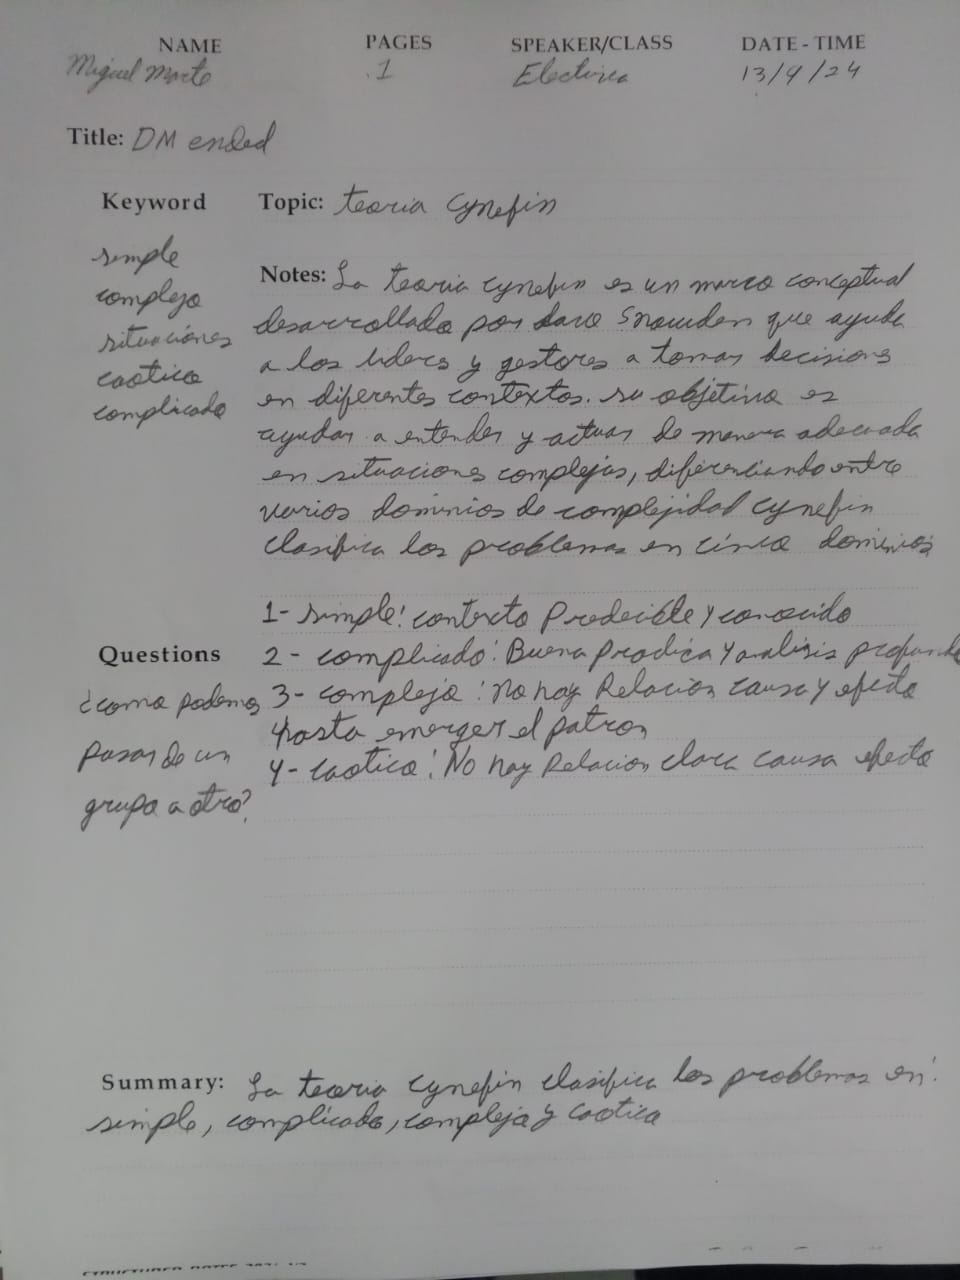 NAME PAGES SPEAKER/CLASS DATE - TIME
Miguel Morte .1 Electiva 13/9/24
Title: DM ended
Keyword Topic: teoria Cynefin
simple
complejo
situaciónes
caotico
complicado
Notes: La teoria cynefin es un marco conceptual
desarrollado por dave Snowden que ayuda
a los lideres y gestores a tomar decisions
en diferentes contextos. su objetivo es
ayudar a entender y actuar de manera adecuada
en situaciones complejas, diferenciando entre
varios dominios de complejidad Cynefin
clasifica los problemas en cinco dominios
1- simple: contexto Predecible y conocido
2- complicado: Buena Practica y analisis profundo
3- complejo: No hay Relacion causa y efecto
hasta emerger el patron
4- caotico: No hay Relacion clara causa efecto
Questions
¿como podemos
pasar de un
grupo a otro?
Summary: La teoria cynefin clasifica los problemas en:
simple, complicado, complejo y caotico